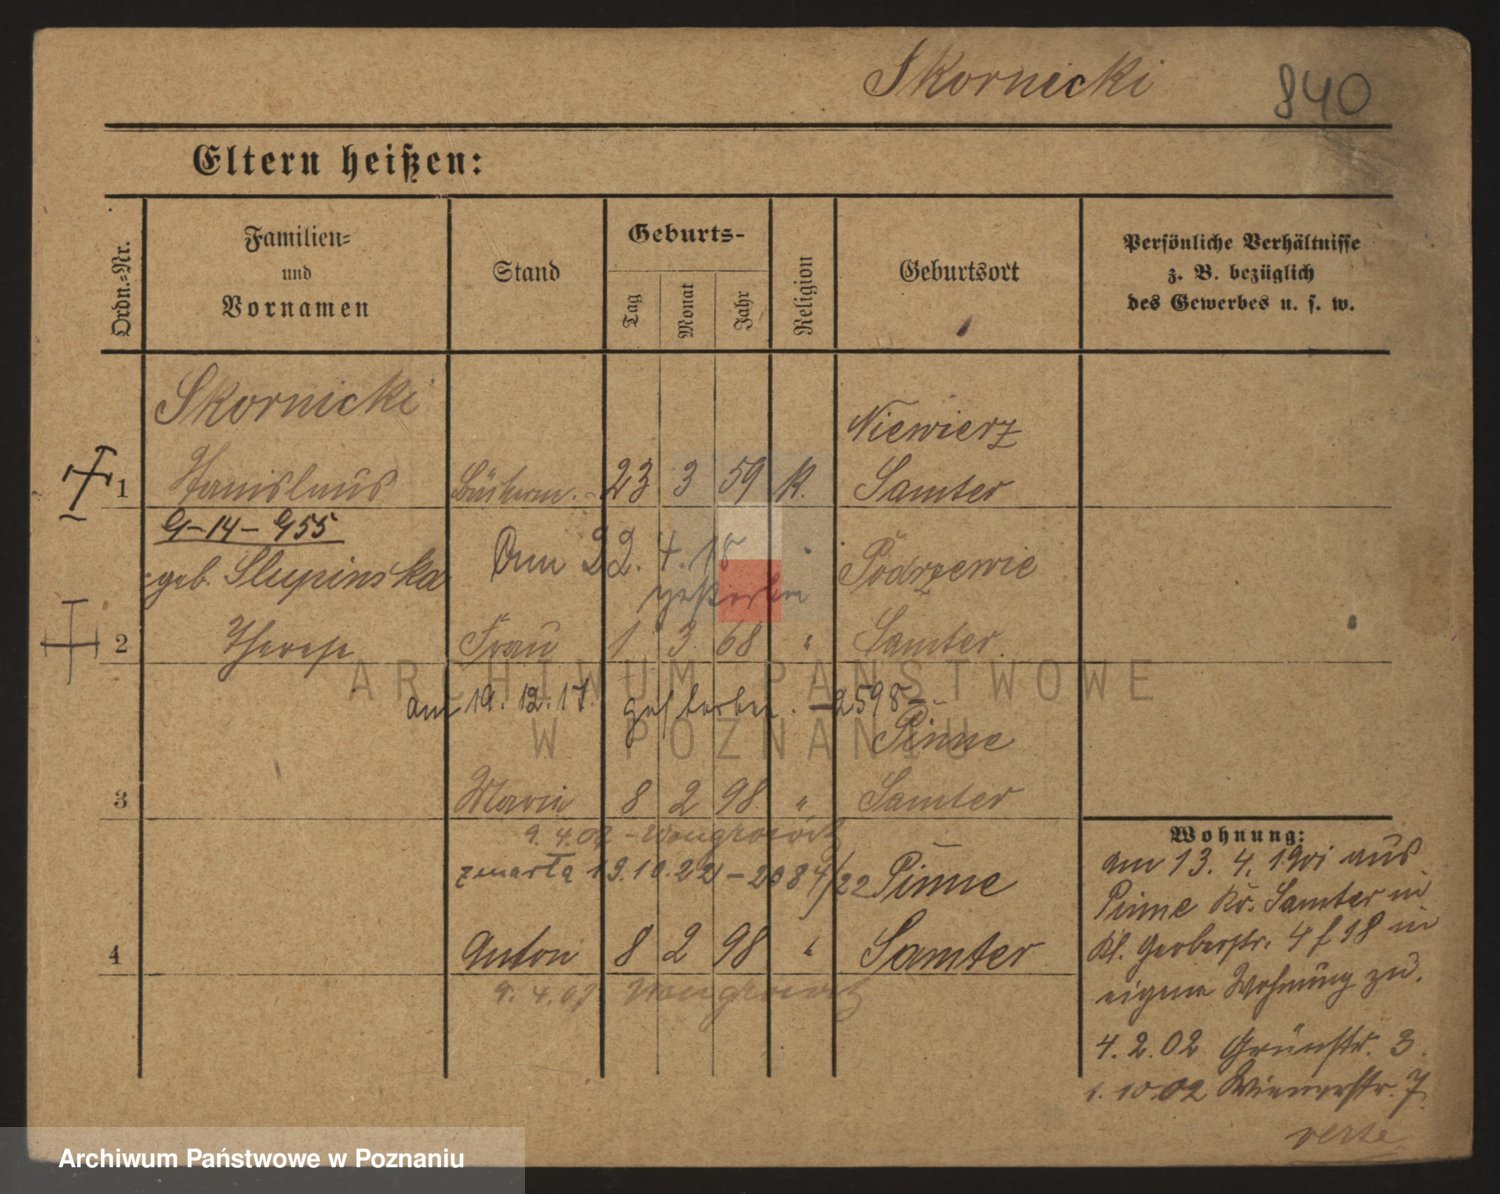 Skornicki 840
Eltern heißen:
Ordn.-Nr.
Familien-
und
Vornamen
Stand
Geburts-
Tag
Monat
Jahr
Religion
Geburtsort
Persönliche Verhältnisse
z. B. bezüglich
des Gewerbes u. s. w.
Skornicki
Niewierz
1 Stanislaus 23 3 59 K. Samter
G-14-G55
Am 22. 4. 15
gestorben
geb. Slupinska
Podrzewie
2 Therese Frau 1 3 68 " Samter
am 19. 12. 17. gestorben. - 2598 -
Pinne
3 Maria 8 2 98 " Samter
9. 4. 02 - Wongrowitz
zmarła 13.10.22 - 2084/22
Pinne
4 Anton 8 2 98 " Samter
9. 4. 02 Wongrowitz
Wohnung:
am 13. 4. 1901 aus
Pinne Kr. Samter in
Kl. Gerberstr. 4 f 18 in
eigene Wohnung zu.
4. 2. 02 Grünstr. 3
1. 10. 02 Wienerstr. 7
verte
ARCHIWUM PAŃSTWOWE
W POZNANIU
Archiwum Państwowe w Poznaniu